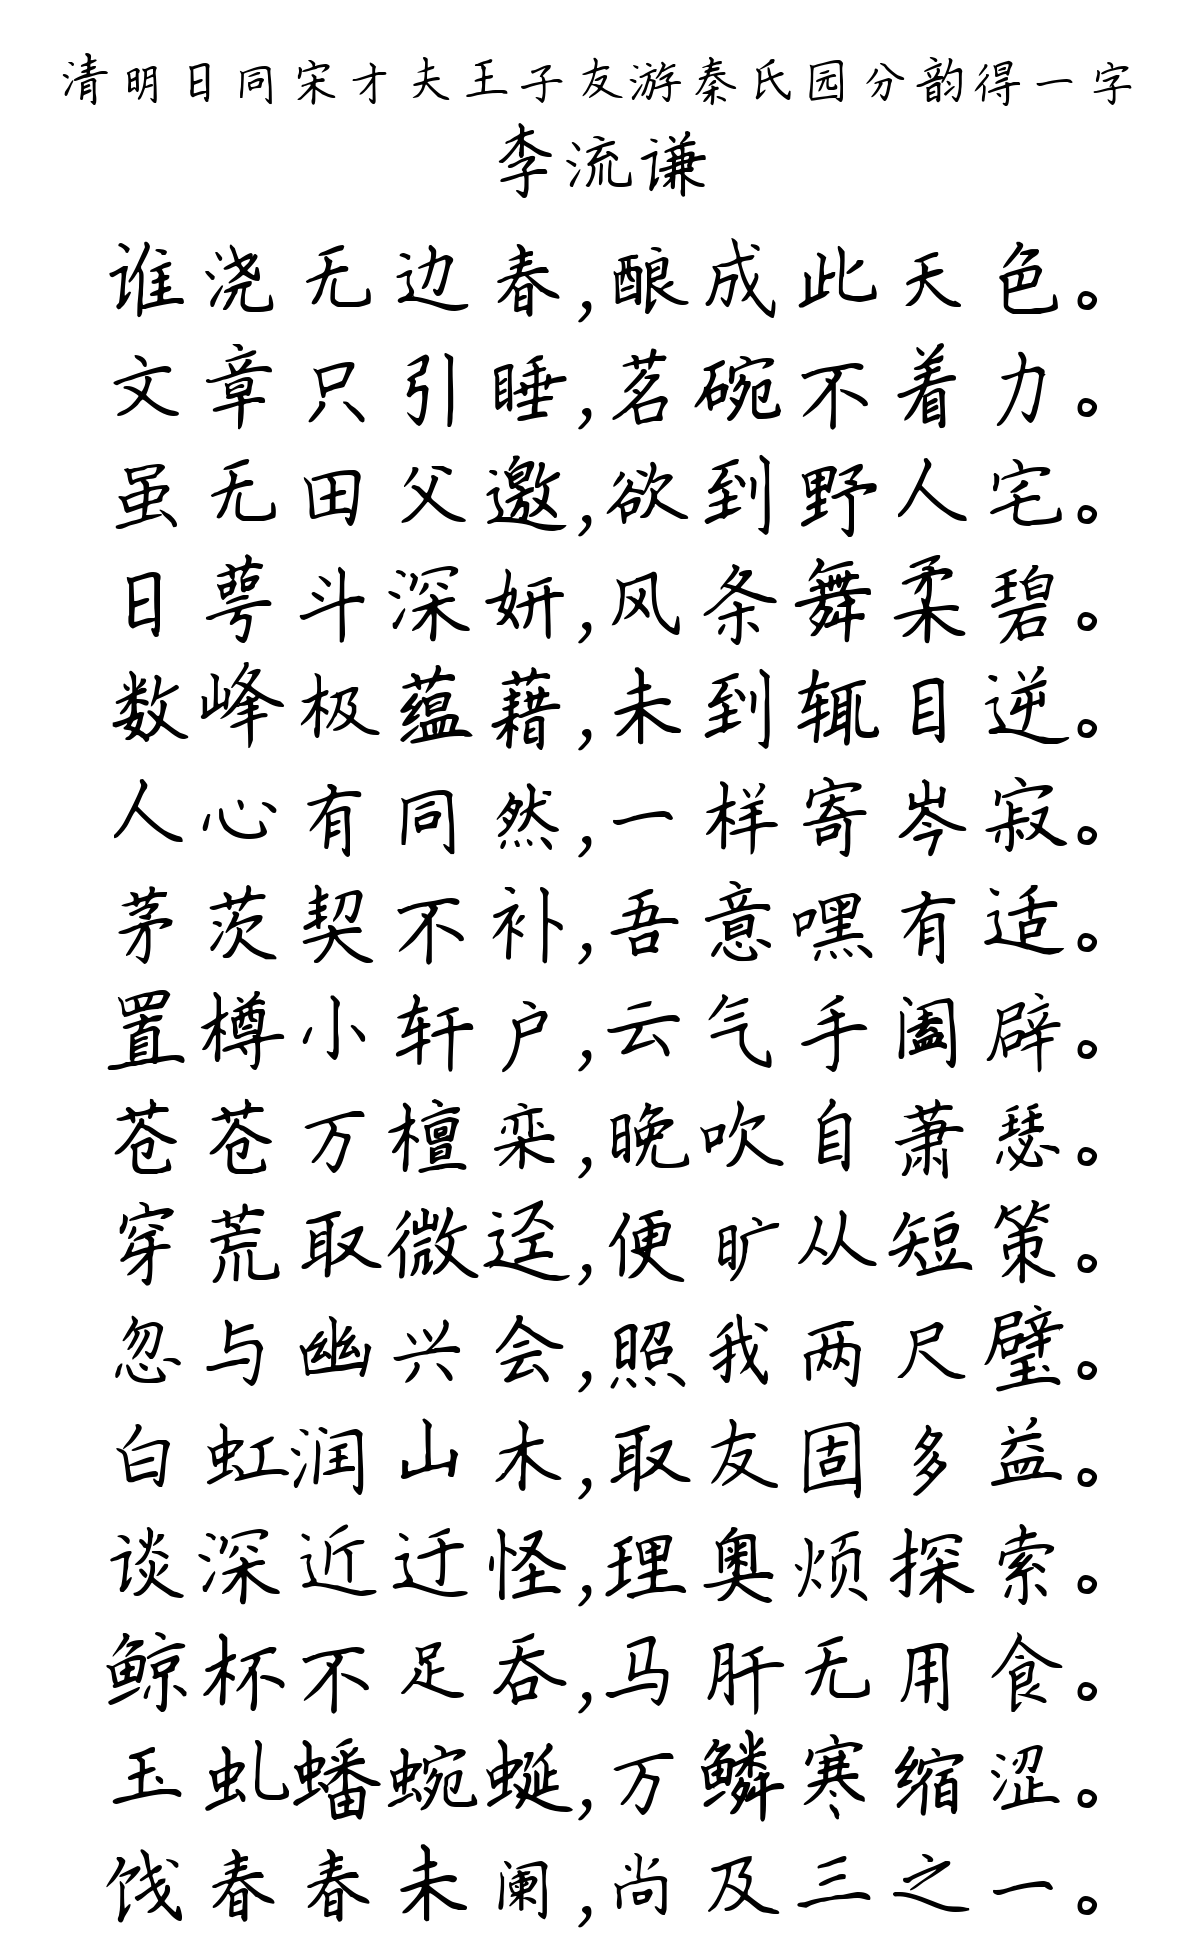 清明日同宋才夫王子友游秦氏园分韵得一字
李流谦
谁浇无边春,酿成此天色。
文章只引睡,茗碗不着力。
虽无田父邀,欲到野人宅。
日萼斗深妍,风条舞柔碧。
数峰极蕴藉,未到辄目逆。
人心有同然,一样寄岑寂。
茅茨契不补,吾意嘿有适。
置樽小轩户,云气手阖辟。
苍苍万檀栾,晚吹自萧瑟。
穿荒取微迳,便旷从短策。
忽与幽兴会,照我两尺璧。
白虹润山木,取友固多益。
谈深近迂怪,理奥烦探索。
鲸杯不足吞,马肝无用食。
玉虬蟠蜿蜒,万鳞寒缩涩。
饯春春未阑,尚及三之一。